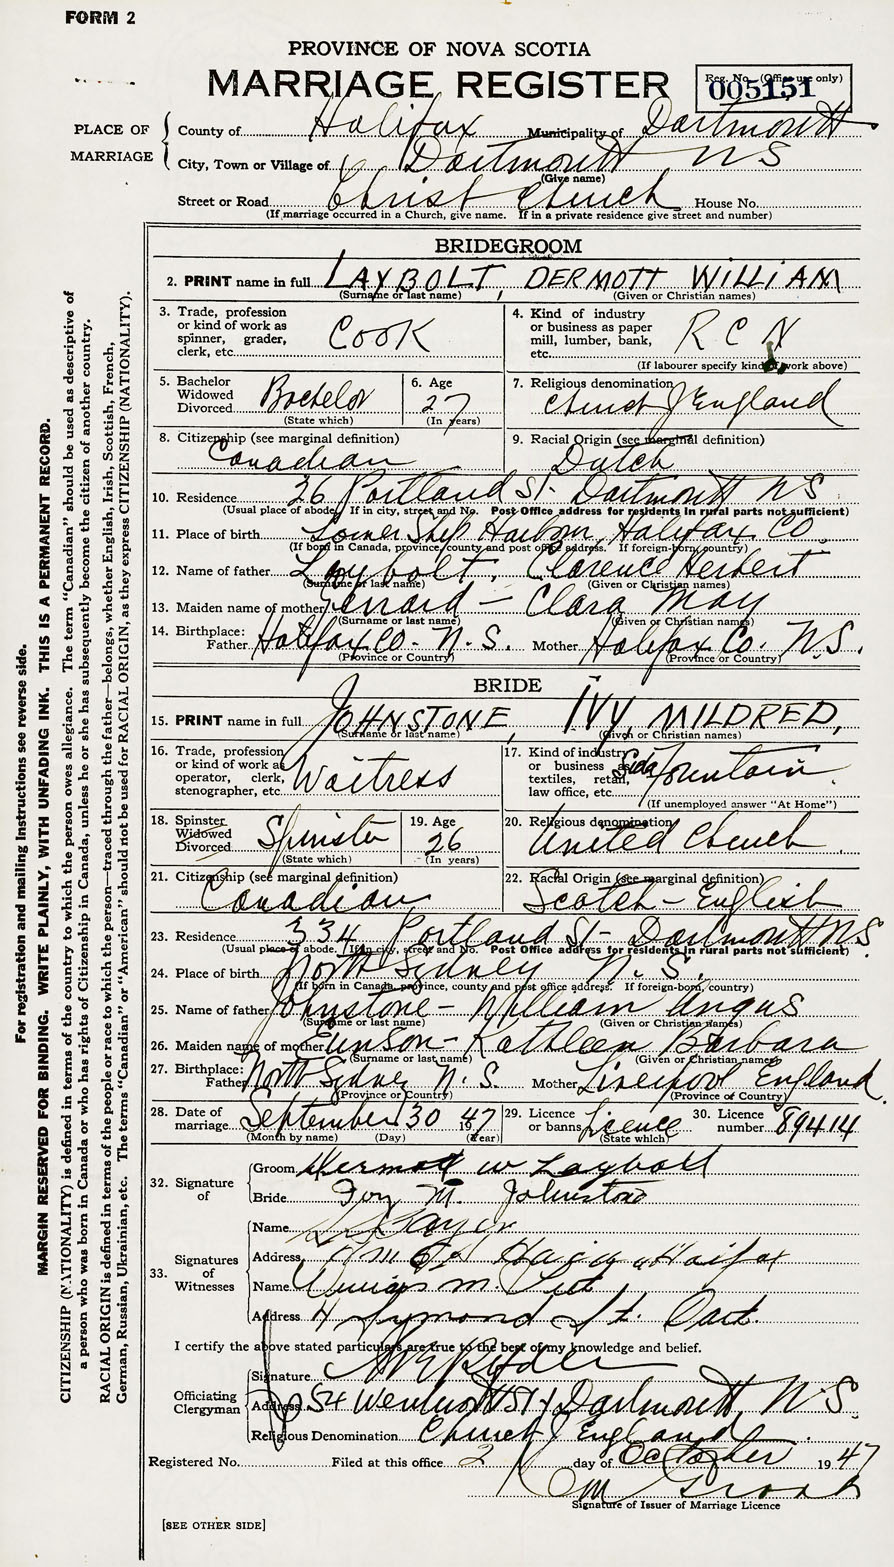 FORM 2
PROVINCE OF NOVA SCOTIA
MARRIAGE REGISTER
Reg. No. (Office use only)
005151
PLACE OF MARRIAGE
County of Halifax Municipality of Dartmouth
City, Town or Village of Dartmouth N S
(Give name)
Street or Road Christ Church House No.
(If marriage occurred in a Church, give name. If in a private residence give street and number)
BRIDEGROOM
2. PRINT name in full LAYBOLT, DERMOTT WILLIAM
(Surname or last name) (Given or Christian names)
3. Trade, profession or kind of work as spinner, grader, clerk, etc. Cook
4. Kind of industry or business as paper mill, lumber, bank, etc. R C N
(If labourer specify kind of work above)
5. Bachelor Widowed Divorced Bachelor
(State which)
6. Age 27
(In years)
7. Religious denomination Church of England
8. Citizenship (see marginal definition) Canadian
9. Racial Origin (see marginal definition) Dutch
10. Residence 26 Portland St. Dartmouth N S
(Usual place of abode. If in city, street and No. Post Office address for residents in rural parts not sufficient)
11. Place of birth Lower Ship Harbour, Halifax Co.
(If born in Canada, province, county and post office address. If foreign-born, country)
12. Name of father Laybolt, Clarence Herbert
(Surname or last name) (Given or Christian names)
13. Maiden name of mother – Clara May
(Surname or last name) (Given or Christian names)
14. Birthplace: Father Halifax Co. N.S. Mother Halifax Co. N.S.
(Province or Country) (Province or Country)
BRIDE
15. PRINT name in full JOHNSTONE, IVY MILDRED,
(Surname or last name) (Given or Christian names)
16. Trade, profession or kind of work as operator, clerk, stenographer, etc. Waitress
17. Kind of industry or business as textiles, retail, law office, etc. Soda fountain
(If unemployed answer "At Home")
18. Spinster Widowed Divorced Spinster
(State which)
19. Age 26
(In years)
20. Religious denomination United Church
21. Citizenship (see marginal definition) Canadian
22. Racial Origin (see marginal definition) Scotch – English
23. Residence 334 Portland St – Dartmouth N.S.
(Usual place of abode. If in city, street and No. Post Office address for residents in rural parts not sufficient)
24. Place of birth North Sydney N.S.
(If born in Canada, province, county and post office address. If foreign-born, country)
25. Name of father Johnstone – William Angus
(Surname or last name) (Given or Christian names)
26. Maiden name of mother – Kathleen Barbara
(Surname or last name) (Given or Christian names)
27. Birthplace: Father North Sydney N.S. Mother Liverpool England.
(Province or Country) (Province or Country)
28. Date of marriage September 30 1947
(Month by name) (Day) (Year)
29. Licence or banns Licence
(State which)
30. Licence number 89414
32. Signature of
Groom Dermott W Laybolt
Bride Ivy M. Johnstone
33. Signatures of Witnesses
Name
Address Halifax
Name
Address St. Dart.
I certify the above stated particulars are true to the best of my knowledge and belief.
Officiating Clergyman
Signature
Address 54 Wentworth St Dartmouth N.S.
Religious Denomination Church of England.
Registered No. Filed at this office 2 day of October 1947
Signature of Issuer of Marriage Licence
[SEE OTHER SIDE]
For registration and mailing instructions see reverse side.
MARGIN RESERVED FOR BINDING. WRITE PLAINLY, WITH UNFADING INK. THIS IS A PERMANENT RECORD.
CITIZENSHIP (NATIONALITY) is defined in terms of the country to which the person owes allegiance. The term "Canadian" should be used as descriptive of
a person who was born in Canada or who has rights of Citizenship in Canada, unless he or she has subsequently become the citizen of another country.
RACIAL ORIGIN is defined in terms of the people or race to which the person—traced through the father—belongs, whether English, Irish, Scottish, French,
German, Russian, Ukrainian, etc. The terms "Canadian" or "American" should not be used for RACIAL ORIGIN, as they express CITIZENSHIP (NATIONALITY).